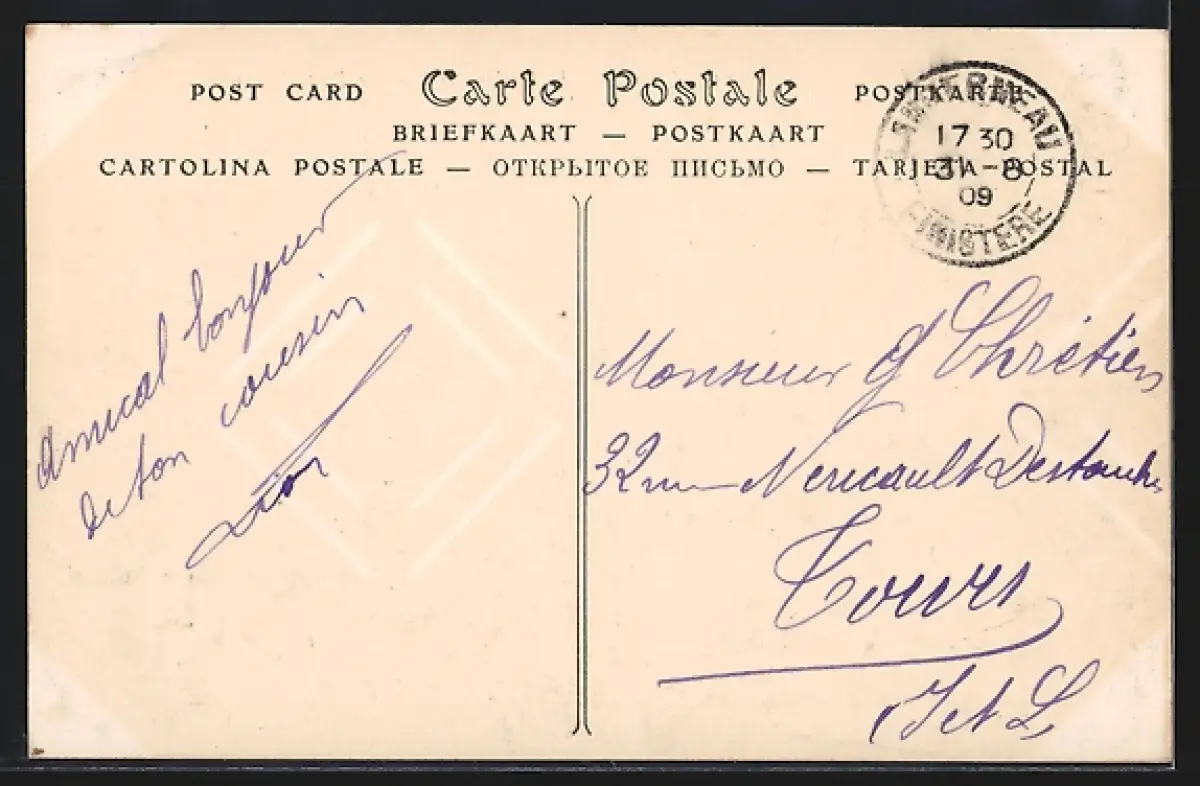 POST CARD Carte Postale POSTKARTE
BRIEFKAART — POSTKAART
CARTOLINA POSTALE — ОТКРЫТОЕ ПИСЬМО — TARJETA POSTAL
LANDERNEAU
17 30
31 - 8
09
FINISTERE
Amical bonjour
de ton cousin
Monsieur G Chrétien
32 rue Nericault Destouches
Tours
(I et L)